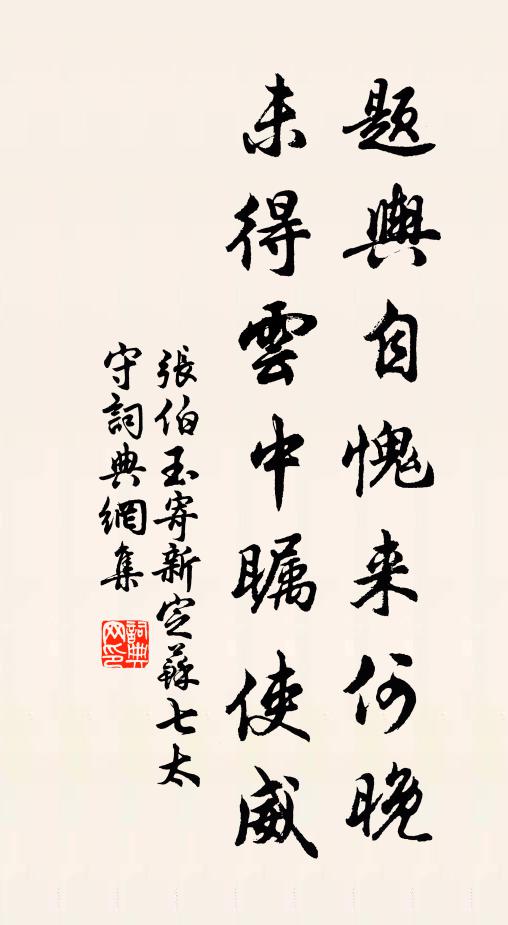 題輿自愧来何晚
未得雲中瞩使威
張伯玉寄新定蘇七太
守詞典網集
詞典网印